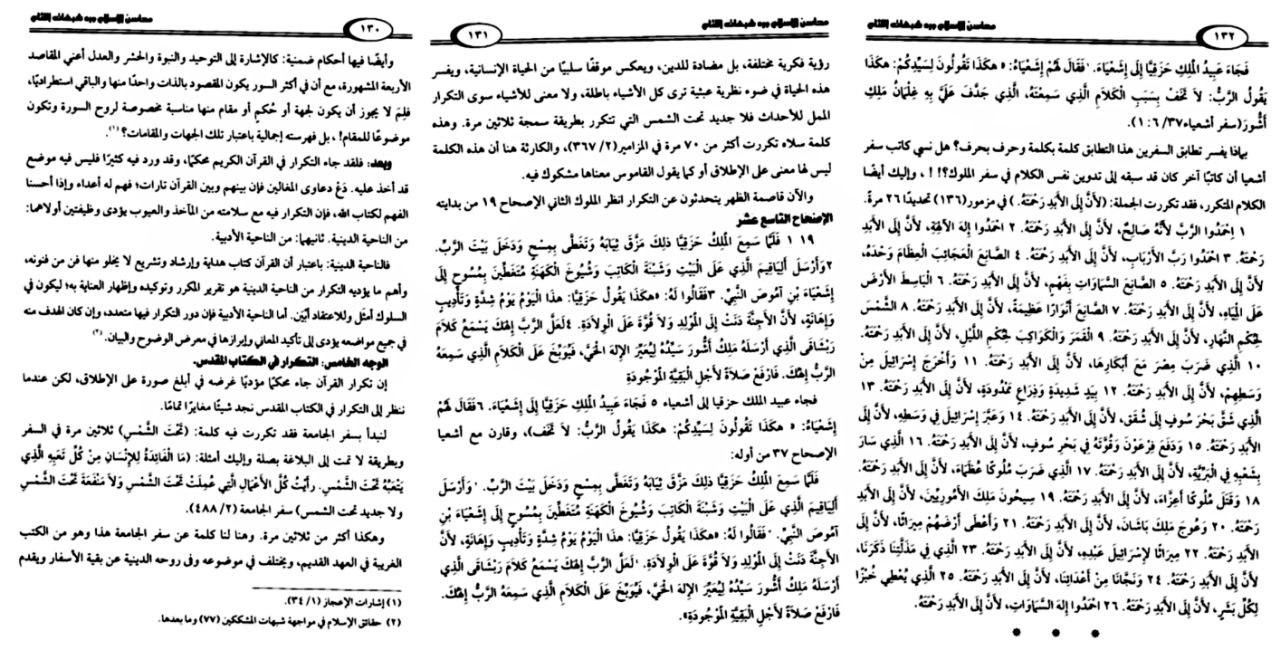 محاسن الإسلام ورد شبهات اللئام
١٣٠
وأيضًا فيها أحكام ضمنية: كالإشارة إلى التوحيد والنبوة والحشر والعدل أعني المقاصد
الأربعة المشهورة، مع أن في أكثر السور يكون المقصود بالذات واحدًا منها والباقي استطراديًا،
فلِمَ لا يجوز أن يكون لجهة أو حُكم أو مقام منها مناسبة مخصوصة لروح السورة وتكون
موضوعًا للمقام!، بل فهرسته إجمالية باعتبار تلك الجهات والمقامات؟(١).
وبعد: فلقد جاء التكرار في القرآن الكريم محكمًا، وقد ورد فيه كثيرًا فليس فيه موضع
قد أخذ عليه. دَعْ دعاوى المغالين فإن بينهم وبين القرآن تارات؛ فهم له أعداء وإذا أحسنا
الفهم لكتاب الله، فإن التكرار فيه مع سلامته من المآخذ والعيوب يؤدى وظيفتين أولاهما:
من الناحية الدينية. ثانيهما: من الناحية الأدبية.
فالناحية الدينية: باعتبار أن القرآن كتاب هداية وإرشاد وتشريع لا يخلو منها فن من فنونه،
وأهم ما يؤديه التكرار من الناحية الدينية هو تقرير المكرر وتوكيده وإظهار العناية به؛ ليكون في
السلوك أمثل وللاعتقاد أبْيَن. أما الناحية الأدبية فإن دور التكرار فيها متعدد، وإن كان الهدف منه
في جميع مواضعه يؤدى إلى تأكيد المعاني وإبرازها في معرض الوضوح والبيان.(٢)
الوجه الخامس: التكرار في الكتاب المقدس.
إن تكرار القرآن جاء محكمًا مؤديًا غرضه في أبلغ صورة على الإطلاق، لكن عندما
ننظر إلى التكرار في الكتاب المقدس نجد شيئًا مغايرًا تمامًا.
لنبدأ بسفر الجامعة فقد تكررت فيه كلمة: (تَحْتَ الشَّمْسِ) ثلاثين مرة في السفر
وبطريقة لا تمت إلى البلاغة بصلة وإليك أمثلة: (مَا الْفَائِدَةُ لِلإِنْسَانِ مِنْ كُلِّ تَعَبِهِ الَّذِي
يَتْعَبُهُ تَحْتَ الشَّمْسِ. رأيتُ كُلَّ الأَعْمَالِ الَّتِي عُمِلَتْ تَحْتَ الشَّمْسِ وَلاَ مَنْفَعَةَ تَحْتَ الشَّمْسِ
ولا جديد تحت الشمس) سفر الجامعة (٢/ ٤٨٨).
وهكذا أكثر من ثلاثين مرة. وهنا لنا كلمة عن سفر الجامعة هذا وهو من الكتب
الغريبة في العهد القديم، ويختلف في موضوعه وفى روحه الدينية عن بقية الأسفار ويقدم
(١) إشارات الإعجاز (١/ ٣٤).
(٢) حقائق الإسلام في مواجهة شبهات المشككين (٧٧) وما بعدها.
محاسن الإسلام ورد شبهات اللئام
١٣١
رؤية فكرية مختلفة، بل مضادة للدين، ويعكس موقفًا سلبيًا من الحياة الإنسانية، ويفسر
هذه الحياة في ضوء نظرية عبثية ترى كل الأشياء باطلة، ولا معنى للأشياء سوى التكرار
الممل للأحداث فلا جديد تحت الشمس التي تتكرر بطريقة سمجة ثلاثين مرة. وهذه
كلمة سلاه تكررت أكثر من ٧٠ مرة في المزامير(٢/ ٣٦٧)، والكارثة هنا أن هذه الكلمة
ليس لها معنى على الإطلاق أو كما يقول القاموس معناها مشكوك فيه.
والآن قاصمة الظهر يتحدثون عن التكرار انظر الملوك الثاني الإصحاح ١٩ من بدايته
الإصْحَاحُ التَّاسِعُ عَشَرَ
١٩ ١ فَلَمَّا سَمِعَ الْمَلِكُ حَزَقِيَّا ذلِكَ مَزَّقَ ثِيَابَهُ وَتَغَطَّى بِمِسْحٍ وَدَخَلَ بَيْتَ الرَّبِّ.
٢وَأَرْسَلَ أَلِيَاقِيمَ الَّذِي عَلَى الْبَيْتِ وَشَبْنَةَ الْكَاتِبَ وَشُيُوخَ الْكَهَنَةِ مُتَغَطِّينَ بِمُسُوحٍ إِلَى
إِشَعْيَاءَ بْنِ آمُوصَ النَّبِيِّ. ٣فَقَالُوا لَهُ: «هكَذَا يَقُولُ حَزَقِيَّا: هذَا الْيَوْمُ يَوْمُ شِدَّةٍ وَتَأْدِيبٍ
وَإِهَانَةٍ، لأَنَّ الأَجِنَّةَ دَنَتْ إِلَى الْمَوْلِدِ وَلاَ قُوَّةَ عَلَى الْوِلاَدَةِ. ٤لَعَلَّ الرَّبَّ إِلهَكَ يَسْمَعُ كَلاَمَ
رَبْشَاقَى الَّذِي أَرْسَلَهُ مَلِكُ أَشُّورَ سَيِّدُهُ لِيُعَيِّرَ الإِلهَ الْحَيَّ، فَيُوَبِّخَ عَلَى الْكَلاَمِ الَّذِي سَمِعَهُ
الرَّبُّ إِلهُكَ. فَارْفَعْ صَلاَةً لأَجْلِ الْبَقِيَّةِ الْمَوْجُودَةِ
فجاء عبيد الملك حزقيا إلى أشعياء ٥ فَجَاءَ عَبِيدُ الْمَلِكِ حَزَقِيَّا إِلَى إِشَعْيَاءَ. ٦فَقَالَ لَهُمْ
إِشَعْيَاءُ: » هكَذَا تَقُولُونَ لِسَيِّدِكُمْ: هكَذَا يَقُولُ الرَّبُّ: لاَ تَخَفْ)، وقارن مع أشعيا
الإصحاح ٣٧ من أوله:
فَلَمَّا سَمِعَ الْمَلِكُ حَزَقِيَّا ذلِكَ مَزَّقَ ثِيَابَهُ وَتَغَطَّى بِمِسْحٍ وَدَخَلَ بَيْتَ الرَّبِّ. ٢وَأَرْسَلَ
أَلِيَاقِيمَ الَّذِي عَلَى الْبَيْتِ وَشَبْنَةَ الْكَاتِبَ وَشُيُوخَ الْكَهَنَةِ مُتَغَطِّينَ بِمُسُوحٍ إِلَى إِشَعْيَاءَ بْنِ
آمُوصَ النَّبِيِّ. ٣فَقَالُوا لَهُ: «هكَذَا يَقُولُ حَزَقِيَّا: هذَا الْيَوْمُ يَوْمُ شِدَّةٍ وَتَأْدِيبٍ وَإِهَانَةٍ، لأَنَّ
الأَجِنَّةَ دَنَتْ إِلَى الْمَوْلِدِ وَلاَ قُوَّةَ عَلَى الْوِلاَدَةِ. ٤لَعَلَّ الرَّبَّ إِلهَكَ يَسْمَعُ كَلاَمَ رَبْشَاقَى الَّذِي
أَرْسَلَهُ مَلِكُ أَشُّورَ سَيِّدُهُ لِيُعَيِّرَ الإِلهَ الْحَيَّ، فَيُوَبِّخَ عَلَى الْكَلاَمِ الَّذِي سَمِعَهُ الرَّبُّ إِلهُكَ.
فَارْفَعْ صَلاَةً لأَجْلِ الْبَقِيَّةِ الْمَوْجُودَةِ».
محاسن الإسلام ورد شبهات اللئام
١٣٢
فَجَاءَ عَبِيدُ الْمَلِكِ حَزَقِيَّا إِلَى إِشَعْيَاءَ. ٦فَقَالَ لَهُمْ إِشَعْيَاءُ: » هكَذَا تَقُولُونَ لِسَيِّدِكُمْ: هكَذَا
يَقُولُ الرَّبُّ: لاَ تَخَفْ بِسَبَبِ الْكَلاَمِ الَّذِي سَمِعْتَهُ، الَّذِي جَدَّفَ عَلَيَّ بِهِ غِلْمَانُ مَلِكِ
أَشُّورَ(سفر أشعياء٣٧/ ١:٦).
بماذا يفسر تطابق السفرين هذا التطابق كلمة بكلمة وحرف بحرف؟ هل نسي كاتب سفر
أشعيا أن كاتبًا آخر كان قد سبقه إلى تدوين نفس الكلام في سفر الملوك؟! !، وإليك أيضًا
الكلام المتكرر، فقد تكررت الجملة: (لأَنَّ إِلَى الأَبَدِ رَحْمَتَهُ.) في مزمور(١٣٦) تحديدًا ٢٦ مرةً.
١ اِحْمَدُوا الرَّبَّ لأَنَّهُ صَالِحٌ، لأَنَّ إِلَى الأَبَدِ رَحْمَتَهُ. ٢ احْمَدُوا إِلهَ الآلِهَةِ، لأَنَّ إِلَى الأَبَدِ
رَحْمَتَهُ. ٣ احْمَدُوا رَبَّ الأَرْبَابِ، لأَنَّ إِلَى الأَبَدِ رَحْمَتَهُ. ٤ الصَّانِعَ الْعَجَائِبَ الْعِظَامَ وَحْدَهُ،
لأَنَّ إِلَى الأَبَدِ رَحْمَتَهُ. ٥ الصَّانِعَ السَّمَاوَاتِ بِفَهْمٍ، لأَنَّ إِلَى الأَبَدِ رَحْمَتَهُ. ٦ الْبَاسِطَ الأَرْضَ
عَلَى الْمِيَاهِ، لأَنَّ إِلَى الأَبَدِ رَحْمَتَهُ. ٧ الصَّانِعَ أَنْوَارًا عَظِيمَةً، لأَنَّ إِلَى الأَبَدِ رَحْمَتَهُ. ٨ الشَّمْسَ
لِحُكْمِ النَّهَارِ، لأَنَّ إِلَى الأَبَدِ رَحْمَتَهُ. ٩ الْقَمَرَ وَالْكَوَاكِبَ لِحُكْمِ اللَّيْلِ، لأَنَّ إِلَى الأَبَدِ رَحْمَتَهُ.
١٠ الَّذِي ضَرَبَ مِصْرَ مَعَ أَبْكَارِهَا، لأَنَّ إِلَى الأَبَدِ رَحْمَتَهُ. ١١ وَأَخْرَجَ إِسْرَائِيلَ مِنْ
وَسَطِهِمْ، لأَنَّ إِلَى الأَبَدِ رَحْمَتَهُ. ١٢ بِيَدٍ شَدِيدَةٍ وَذِرَاعٍ مَمْدُودَةٍ، لأَنَّ إِلَى الأَبَدِ رَحْمَتَهُ. ١٣
الَّذِي شَقَّ بَحْرَ سُوفٍ إِلَى شُقَق، لأَنَّ إِلَى الأَبَدِ رَحْمَتَهُ. ١٤ وَعَبَّرَ إِسْرَائِيلَ فِي وَسَطِهِ، لأَنَّ إِلَى
الأَبَدِ رَحْمَتَهُ. ١٥ وَدَفَعَ فِرْعَوْنَ وَقُوَّتَهُ فِي بَحْرِ سُوفٍ، لأَنَّ إِلَى الأَبَدِ رَحْمَتَهُ. ١٦ الَّذِي سَارَ
بِشَعْبِهِ فِي الْبَرِّيَّةِ، لأَنَّ إِلَى الأَبَدِ رَحْمَتَهُ. ١٧ الَّذِي ضَرَبَ مُلُوكًا عُظَمَاءَ، لأَنَّ إِلَى الأَبَدِ رَحْمَتَهُ.
١٨ وَقَتَلَ مُلُوكًا أَعِزَّاءَ، لأَنَّ إِلَى الأَبَدِ رَحْمَتَهُ. ١٩ سِيحُونَ مَلِكَ الأَمُورِيِّينَ، لأَنَّ إِلَى الأَبَدِ
رَحْمَتَهُ. ٢٠ وَعُوجَ مَلِكَ بَاشَانَ، لأَنَّ إِلَى الأَبَدِ رَحْمَتَهُ. ٢١ وَأَعْطَى أَرْضَهُمْ مِيرَاثًا، لأَنَّ إِلَى
الأَبَدِ رَحْمَتَهُ. ٢٢ مِيرَاثًا لإِسْرَائِيلَ عَبْدِهِ، لأَنَّ إِلَى الأَبَدِ رَحْمَتَهُ. ٢٣ الَّذِي فِي مَذَلَّتِنَا ذَكَرَنَا،
لأَنَّ إِلَى الأَبَدِ رَحْمَتَهُ. ٢٤ وَنَجَّانَا مِنْ أَعْدَائِنَا، لأَنَّ إِلَى الأَبَدِ رَحْمَتَهُ. ٢٥ الَّذِي يُعْطِي خُبْزًا
لِكُلِّ بَشَرٍ، لأَنَّ إِلَى الأَبَدِ رَحْمَتَهُ. ٢٦ احْمَدُوا إِلهَ السَّمَاوَاتِ، لأَنَّ إِلَى الأَبَدِ رَحْمَتَهُ.